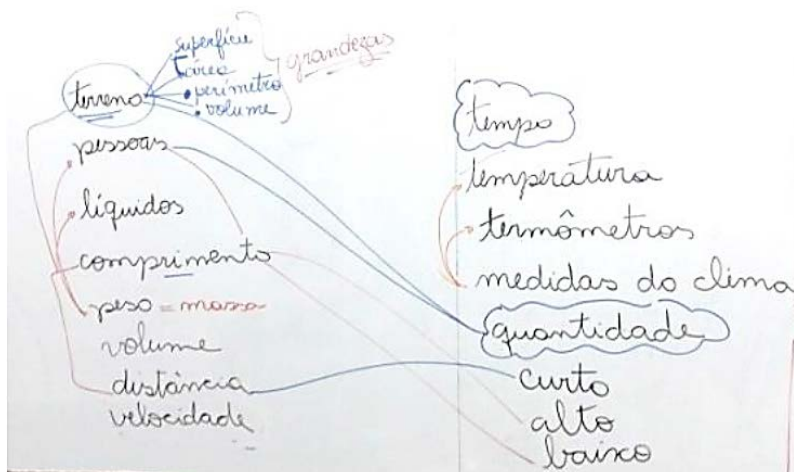 superfície
área
grandezas
terreno
• perímetro
• volume
pessoas
líquidos
comprimento
peso = massa
volume
distância
velocidade
tempo
temperatura
termômetros
medidas do clima
quantidade
curto
alto
baixo